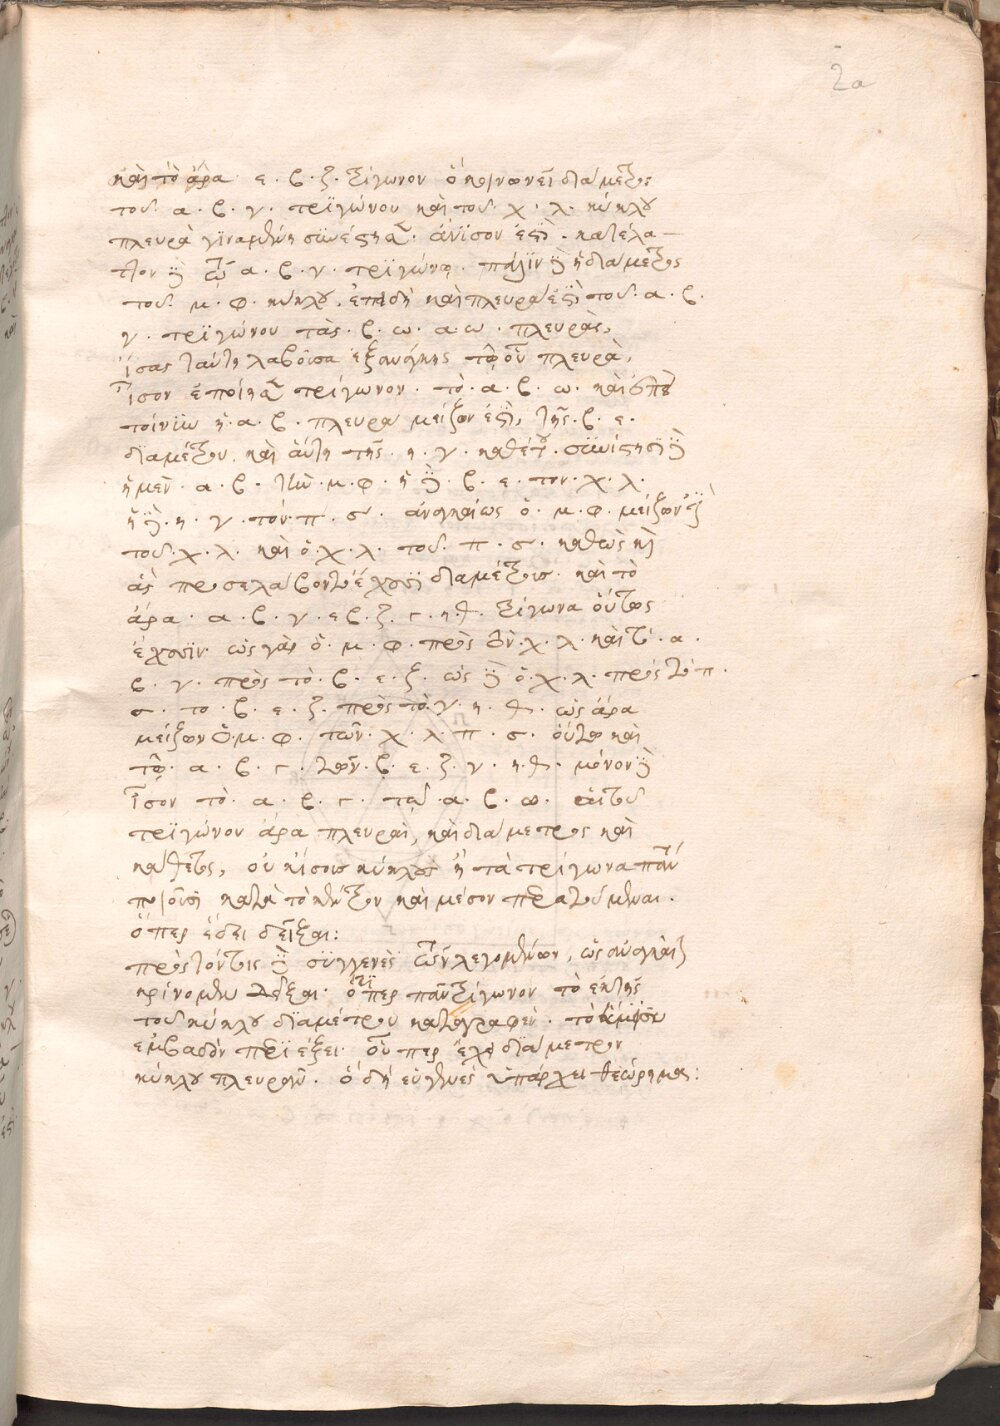 2a
καὶ τὸ ἄρα ε · β · ζ · τρίγωνον ὁ κοινωνεῖ διάμετρος
τοῦ α · β · γ · τριγώνου καὶ τοῦ χ · λ · κύκλου
πλευρὰ ἄνισον ἐστὶ ·
δὲ τῷ α · β · γ · τριγώνῳ · πάλιν δὲ ἡ διάμετρος
τοῦ μ · φ · κύκλου · ἐπειδὴ καὶ πλευρά ἐστι τοῦ · α · β ·
γ · τριγώνου τὰς · β · ω · α · ω · πλευρὰς,
ἴσας ταύτῃ λαβοῦσα ἐξ ἀνάγκης πλευρὰ,
ἴσον ἐποίησε τρίγωνον · τὸ · α · β · ω · καὶ
τοίνυν ἡ · α · β · πλευρὰ μείζων ἐστὶ, τῆς · β · ε ·
διαμέτρου · καὶ αὕτη τῆς · η · γ · καθέτου · συνίστησι δὲ
ἡ μὲν · α · β · τὸν · μ · φ · ἡ δὲ · β · ε · τον · χ · λ ·
ἡ δὲ · η · γ · τὸν · π · σ · ἀναγκαίως ὁ · μ · φ · μείζων ἐστὶ
τοῦ · χ · λ · καὶ ὁ · χ · λ · τοῦ · π · σ · καθὼς καὶ
ἃς προσελάβοντο ἔχουσι διαμέτρους · καὶ τὸ
ἄρα · α · β · γ · ε β · ζ · γ · η · θ · τρίγωνα οὕτως
ἔχουσιν · ὡς γὰρ ὁ · μ · φ · πρὸς τὸν · χ · λ · καὶ τὸ · α ·
β · γ · πρὸς τὸ · β · ε · ζ · ὡς δὲ ὁ · χ · λ · πρὸς τὸ π ·
σ · το · β · ε · ζ · πρὸς τὸ · γ · η · θ · ὡς ἄρα
μείζων ὁ · μ · φ · τῶν · χ · λ · π · σ · οὕτω καὶ
τὸ · α · β · γ · τῶν · β · ε · ζ · γ · η · θ · μόνον δὲ
ἴσον τὸ · α · β · γ · τῷ · α · β · ω · αἱ τοῦ
τριγώνου ἄρα πλευραὶ, καὶ διάμετρος καὶ
κάθετος, οὐκ ἴσους κύκλους ἢ τὰ τρίγωνα πάντα
ποιοῦσι κατὰ τὸ κέντρον καὶ μέσον
ὅπερ ἔδει δεῖξαι :
πρὸς τούτοις δὲ συγγενὲς τῶν λεγομένων, ὡς
κρίνομεν δεῖξαι · ὅτιπερ πᾶν τρίγωνον τὸ ἐκ τῆς
τοῦ κύκλου διαμέτρου καταγραφὲν · τὸ ἥμισυ
ἐμβαδὸν περιέξει · οὗπερ ἔχει διάμετρον
κύκλου πλευρὰν · ὁ δὴ εὐφυὲς ὑπάρχει θεώρημα :